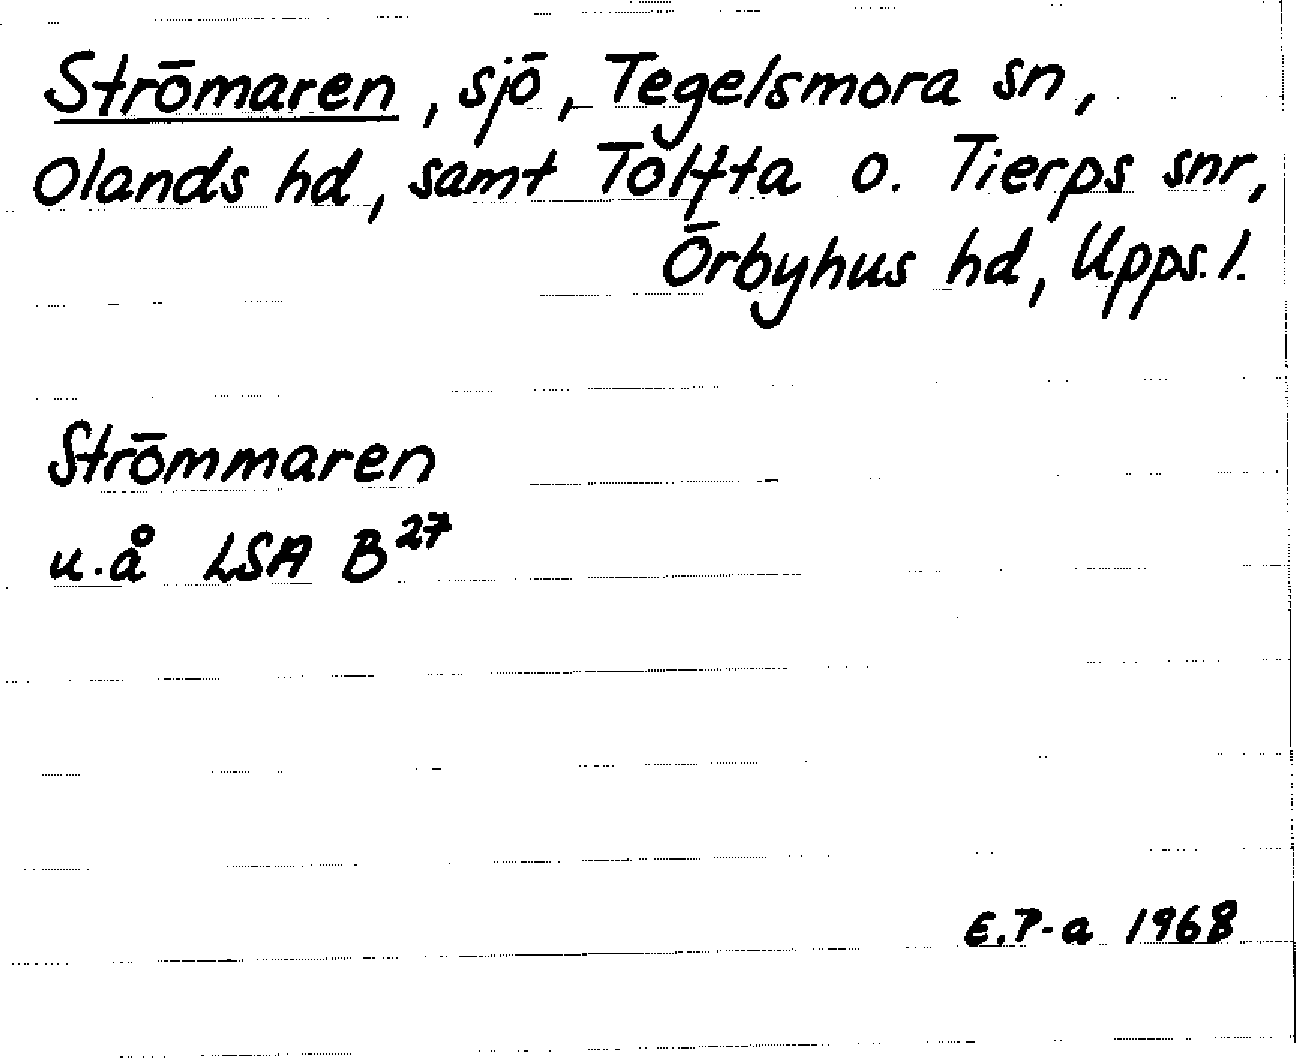 Strömaren, sjö, Tegelsmora sn,
Olands hd, samt Tolfta o. Tierps snr,
Örbyhus hd, Upps. l.
Strömmaren
u.å LSA B27
E.P-a 1968